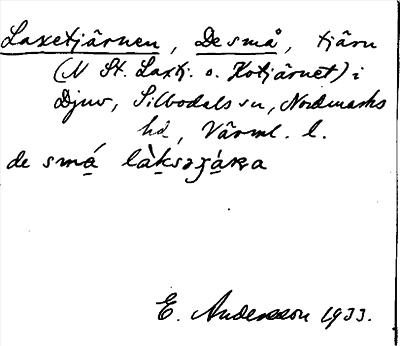 Laxetjärnen, De små, tjärn
(N St. Laxtj. o. Kotjärnet) i
Djuv, Silbodals sn, Nordmarks
hd, Värml. l.
de små
E. Andersson 1933.